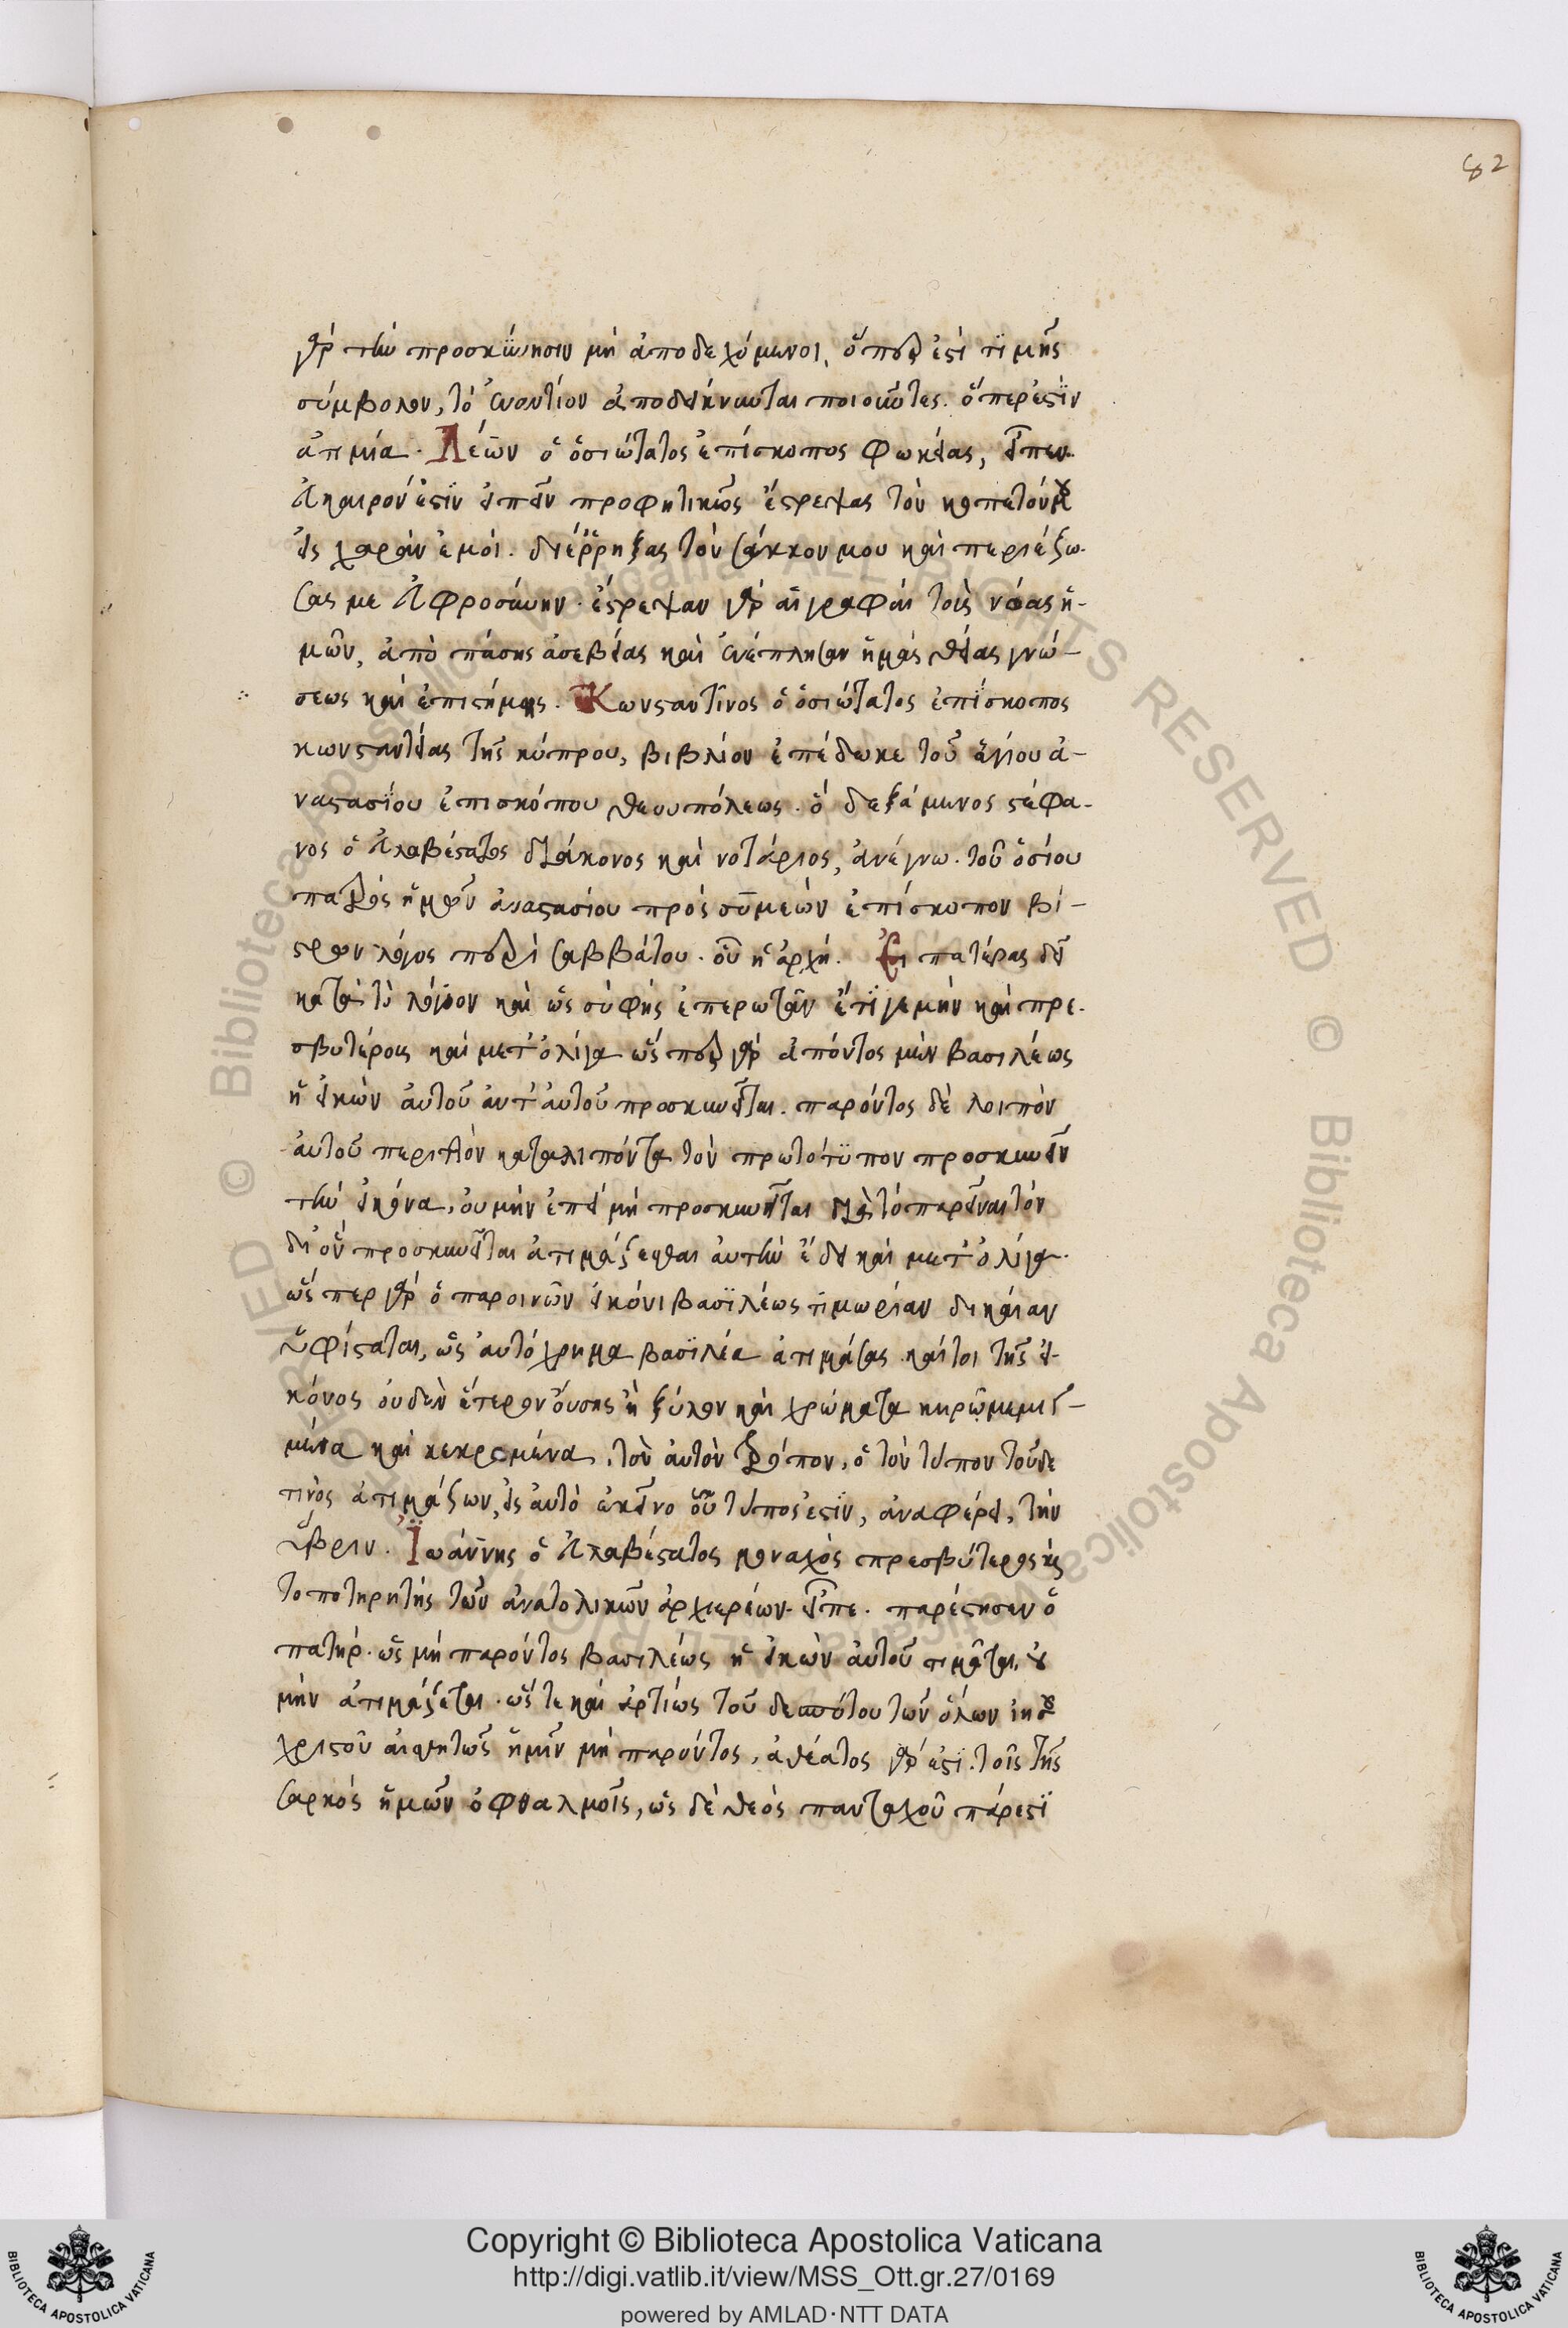 82
γὰρ τὴν προσκύνησιν μὴ ἀποδεχόμενοι, ὅπερ ἐστὶ τιμῆς
σύμβολον, τὸ ἐναντίον ἀποδείκνυνται ποιοῦντες. ὅπερ ἐστὶν
ἀτιμία. Λέων ὁ ὁσιώτατος ἐπίσκοπος Φωκείας, εἶπεν.
εὔκαιρον ἐστὶν εἰπεῖν προφητικῶς ἔστρεψας τὸν κοπετόν μου
εἰς χαρὰν ἐμοί. διέρρηξας τὸν σάκκον μου καὶ περιέζω-
σας με εὐφροσύνην. ἔστρεψαν γὰρ αἱ γραφαὶ τοὺς νόας ἡ-
μῶν, ἀπὸ πάσης ἀσεβείας καὶ ἐνέπλησαν ἡμᾶς θείας γνώ-
σεως καὶ ἐπιστήμης. Κωνσταντῖνος ὁ ὁσιώτατος ἐπίσκοπος
κωνσταντείας τῆς κύπρου, βιβλίον ἐπέδωκε τοῦ ἁγίου ἀ-
ναστασίου ἐπισκόπου θεουπόλεως. ὃ δεξάμενος στέφα-
νος ὁ εὐλαβέστατος διάκονος καὶ νοτάριος, ἀνέγνω. τοῦ ὁσίου
πατρὸς ἡμῶν ἀναστασίου πρὸς συμεὼν ἐπίσκοπον βό-
στρων λόγος περὶ σαββάτου. οὗ ἡ ἀρχή. Ἐπὶ πατέρας δεῖ
κατὰ τὸ λόγιον καὶ ὡς σὺ φὴς ἐπερωτᾶν ἔτι γε μὴν καὶ πρε-
σβυτέρους καὶ μετ' ὀλίγα ὥσπερ γὰρ ἀπόντος μὲν βασιλέως
ἡ εἰκὼν αὐτοῦ ἀντ' αὐτοῦ προσκυνεῖται. παρόντος δὲ λοιπὸν
αὐτοῦ περιττὸν καταλιπόντα τὸν πρωτότυπον προσκυνεῖν
τὴν εἰκόνα, οὐ μὴν ἐπεὶ μὴ προσκυνεῖται διὰ τὸ παρεῖναι τὸν
δι' ὃν προσκυνεῖται ἀτιμάζεσθαι αὐτὴν ἔδει καὶ μετ' ὀλίγα.
ὥσπερ γὰρ ὁ παροινῶν εἰκόνι βασιλέως τιμωρίαν δικαίαν
ὑφίσταται, ὡς αὐτόχρημα βασιλέα ἀτιμάσας. καίτοι τῆς εἰ-
κόνος οὐδὲν ἕτερον οὔσης ἢ ξύλον καὶ χρώματα κηρῷ μεμιγ-
μένα καὶ κεκραμένα, τὸν αὐτὸν τρόπον, ὁ τὸν τύπον τοῦδε
τινὸς ἀτιμάζων, εἰς αὐτὸ ἐκεῖνο οὗ τύπος ἐστὶν, ἀναφέρει, τὴν
ὕβριν. Ἰωάννης ὁ εὐλαβέστατος μοναχὸς πρεσβύτερος καὶ
τοποτηρητὴς τῶν ἀνατολικῶν ἀρχιερέων. εἶπε. παρέστησεν ὁ
πατὴρ. ὡς μὴ παρόντος βασιλέως ἡ εἰκὼν αὐτοῦ τιμᾶται, οὐ
μὴν ἀτιμάζεται. ὥς τε καὶ ἀρτίως τοῦ δεσπότου τῶν ὅλων ἰησοῦ
χριστοῦ αἰσθητῶς ἡμῖν μὴ παρόντος, ἀθέατος γάρ ἐστι. τοῖς τῆς
σαρκὸς ἡμῶν ὀφθαλμοῖς, ὡς δὲ θεὸς πανταχοῦ πάρεστι
Copyright © Biblioteca Apostolica Vaticana
http://digi.vatlib.it/view/MSS_Ott.gr.27/0169
powered by AMLAD·NTT DATA